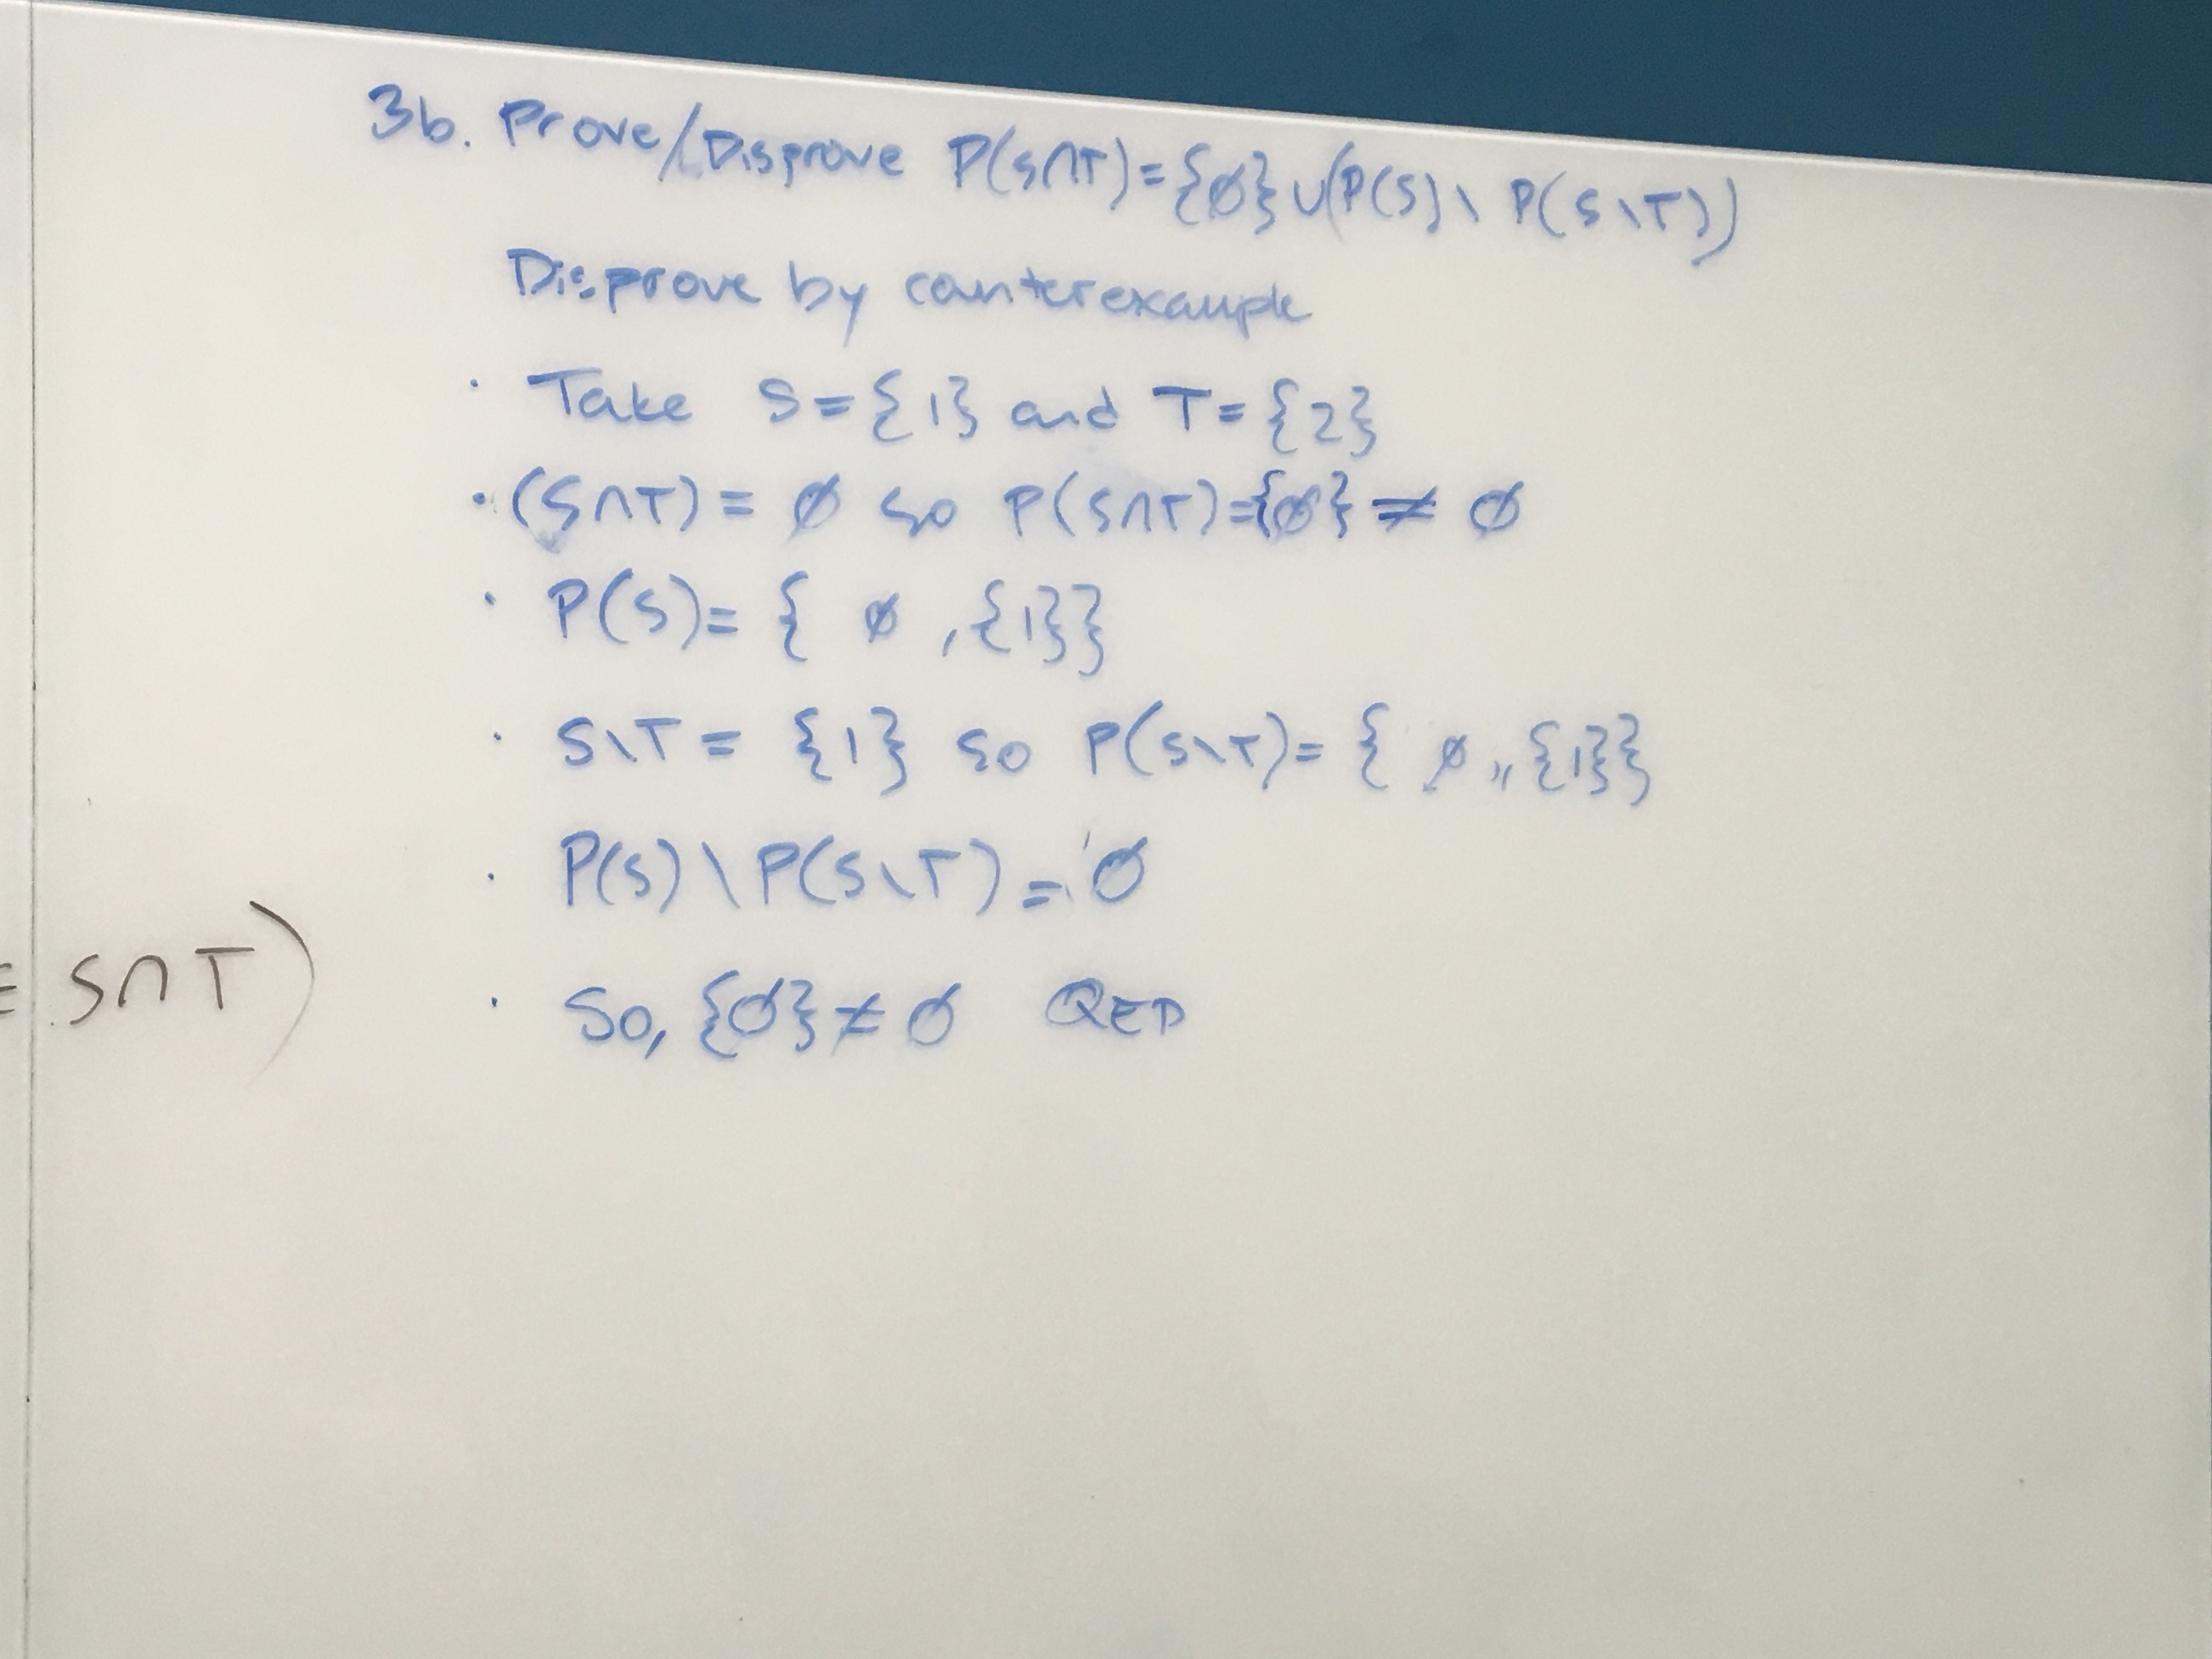 3b. Prove/Disprove P(S∩T)={∅}∪(P(S)\P(S\T))
Disprove by counterexample
· Take S={1} and T={2}
· (S∩T)=∅ so P(S∩T)={∅}≠∅
· P(S)={∅,{1}}
· S\T={1} so P(S\T)={∅,,{1}}
· P(S)\P(S\T)=∅
= S∩T)
· So, {∅}≠∅ QED